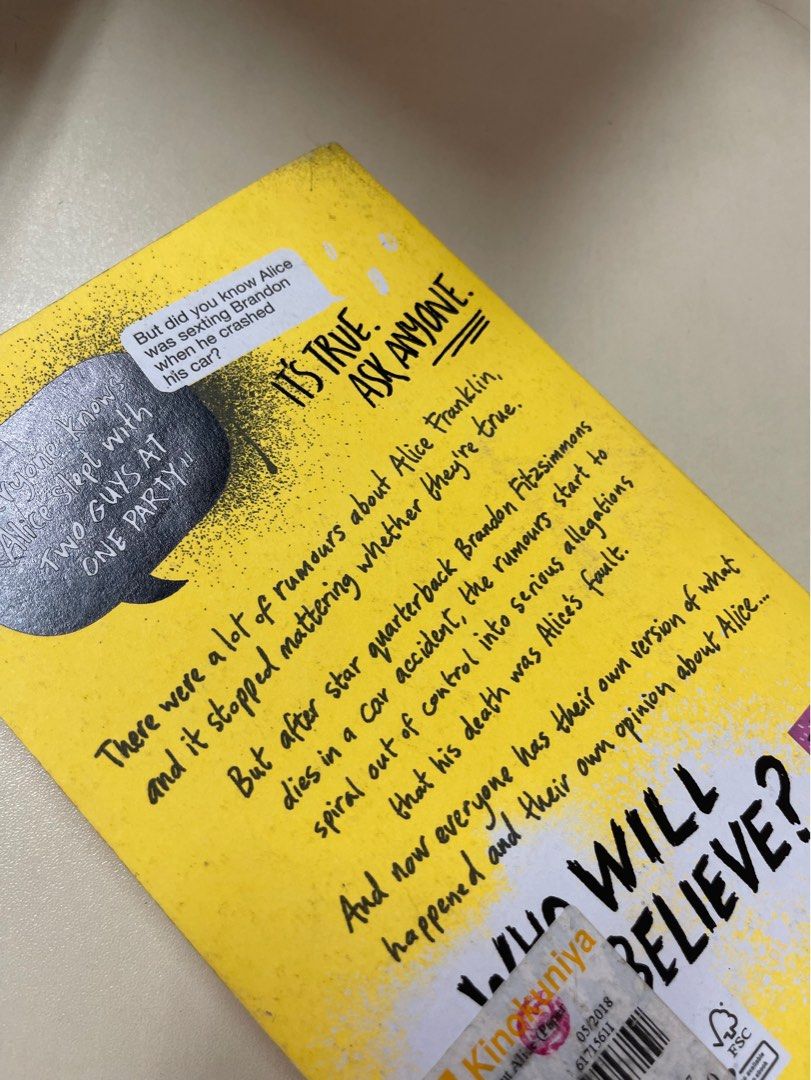 But did you know Alice
was sexting Brandon
when he crashed
his car?
knows
Alice slept with
TWO GUYS AT
ONE PARTY"
IT'S TRUE.
ASK ANYONE.
There were a lot of rumours about Alice Franklin,
and it stopped mattering whether they're true.
But after star quarterback Brandon Fitzsimmons
dies in a car accident, the rumours start to
spiral out of control into serious allegations
that his death was Alice's fault.
And now everyone has their own version of what
happened and their own opinion about Alice...
WHO WILL
BELIEVE?
Kinokuniya
05/2018
61715611
FSC
available